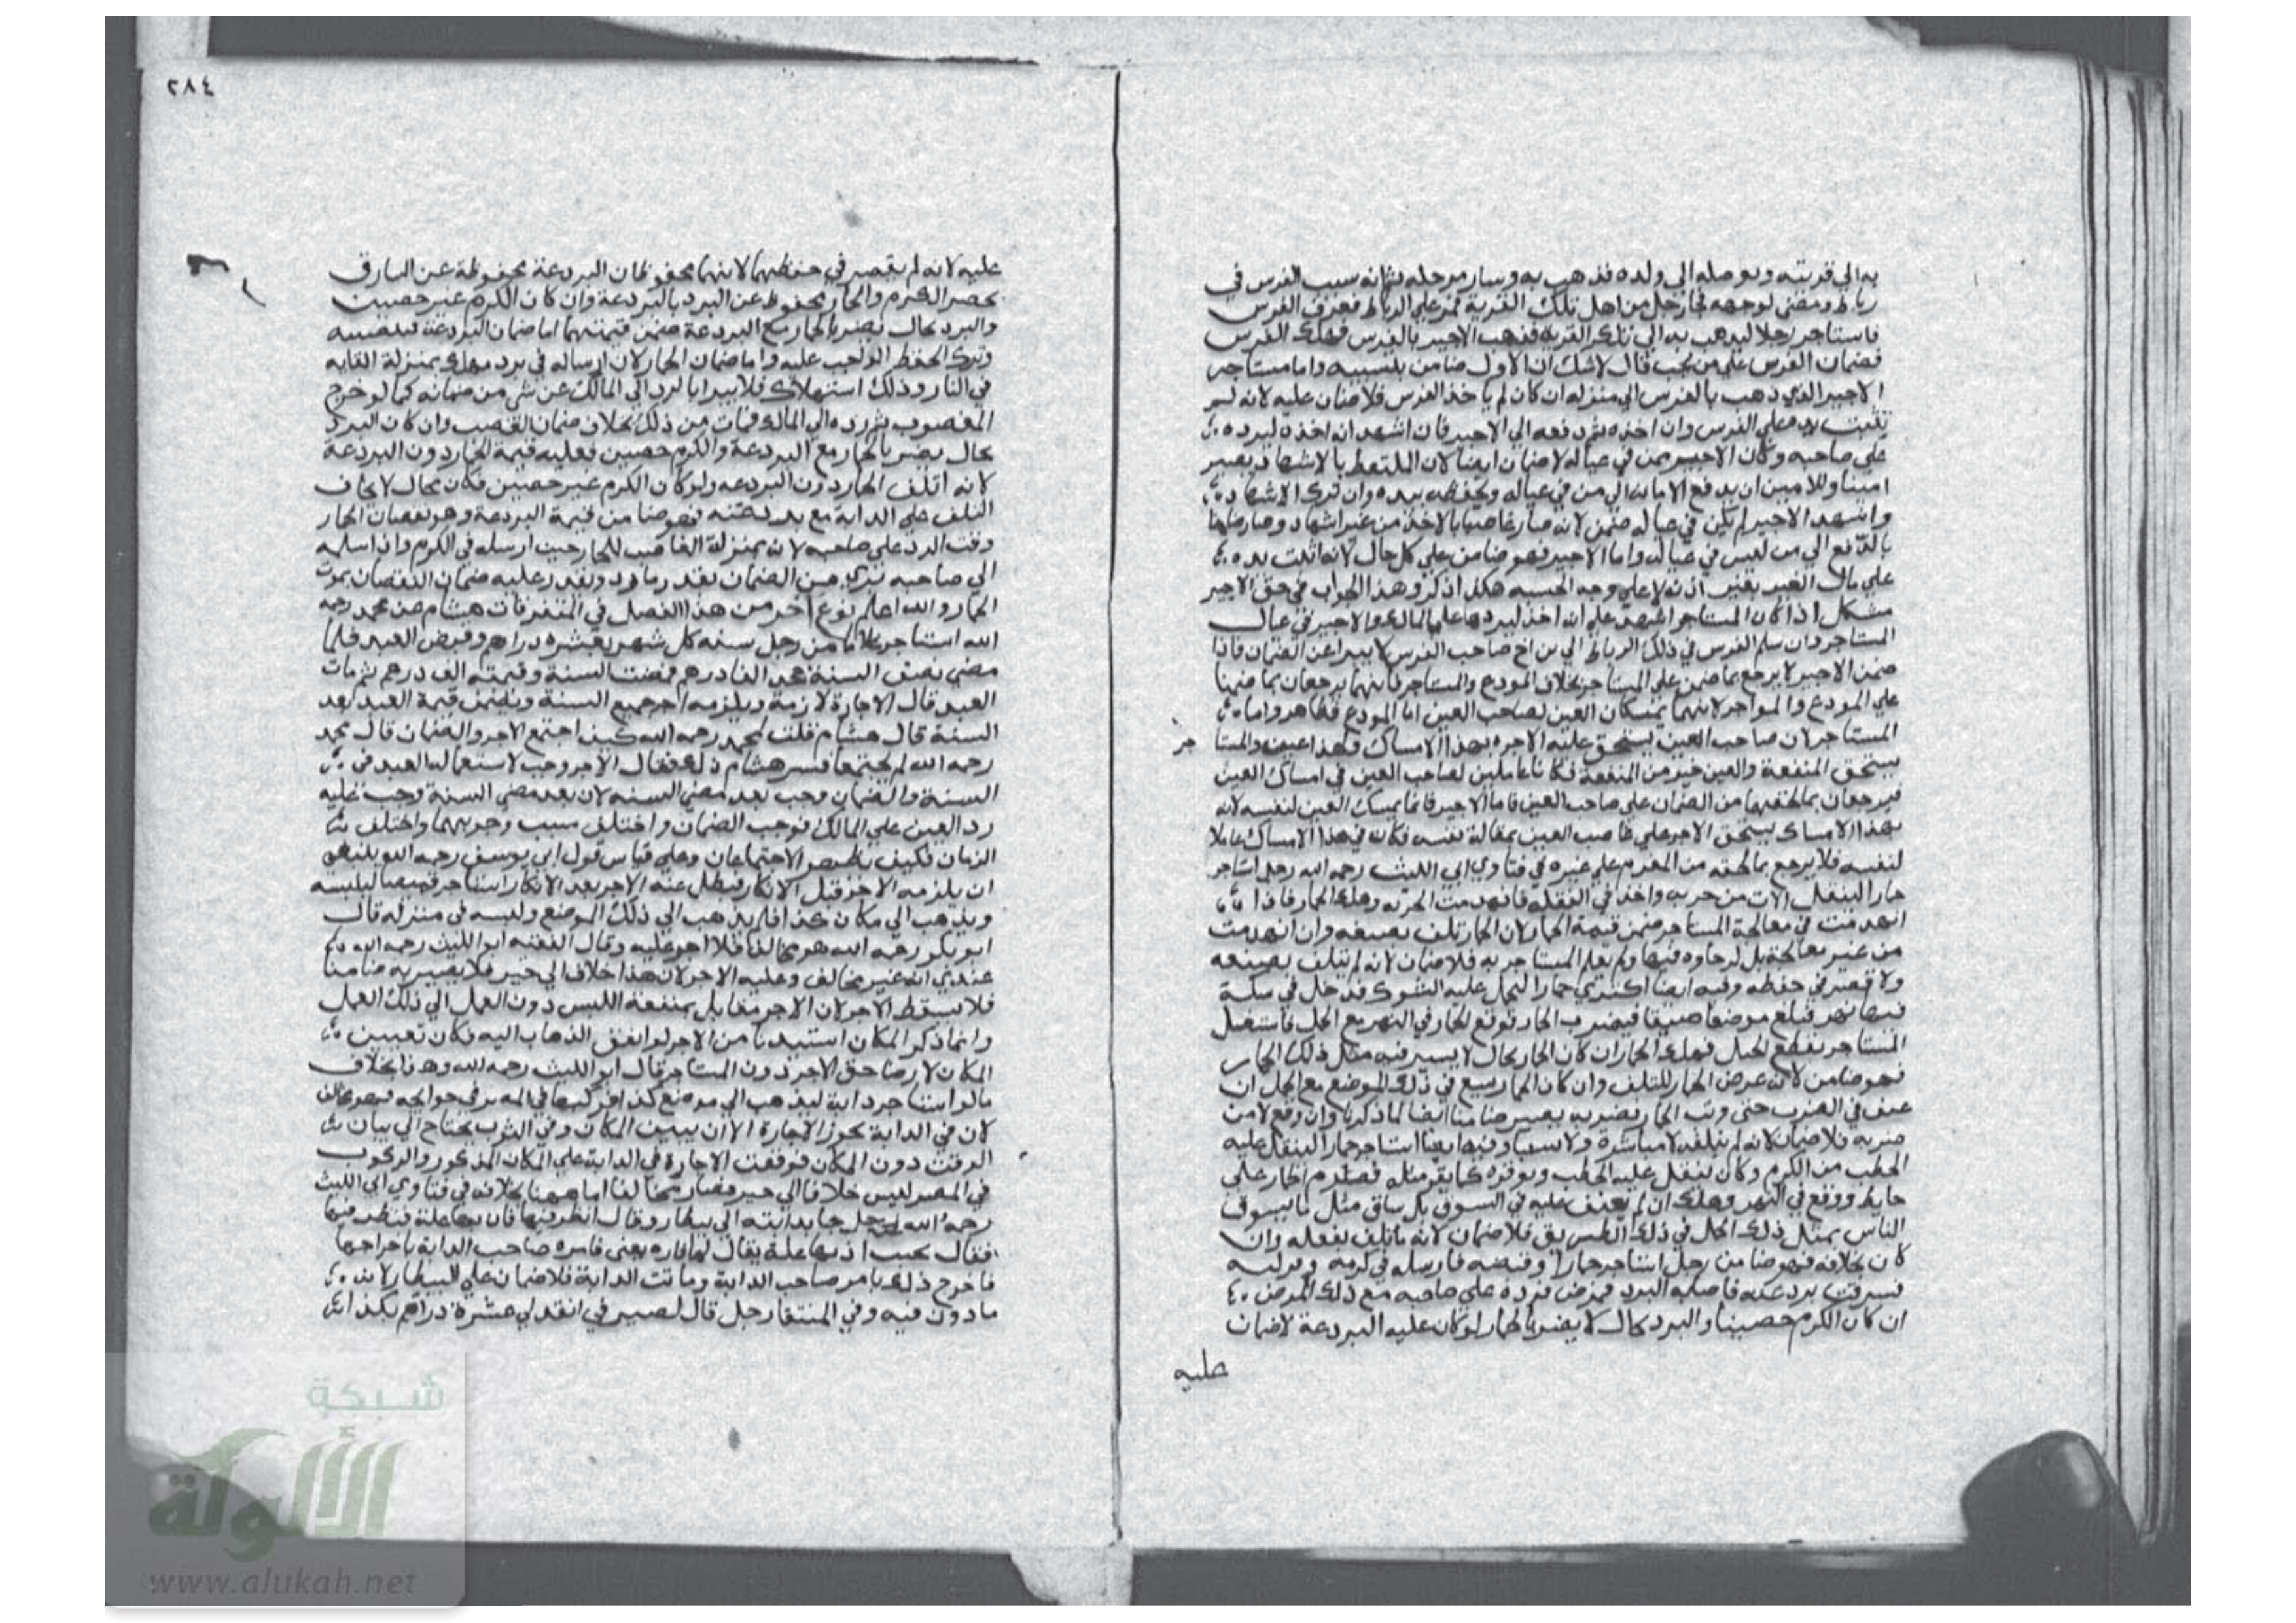 به الى قريته ويوصله الى ولده فذهب به وسار مرحله ثم انه سيب الفرس في
رباط ومضى لوجهه فجا رجل من اهل تلك القرية فمر على الرباط فعرف الفرس
فاستاجر رجلا ليذهب به الى تلك القرية فذهب الاجير بالفرس فهلك الفرس
فضمان الفرس على من يجب قال لا شك ان الاول ضامن بتسييبه واما مستاجر
الاجير الذي ذهب بالفرس الى منزله ان كان لم ياخذ الفرس فلا ضمان عليه لانه لم
تثبت يده على الفرس وان اخذه ثم دفعه الى الاجير فان اشهد انه اخذه ليرده
على صاحبه وكان الاجير ممن في عياله لا ضمان ايضا لان الملتقط بالاشهاد يصير
امينا وللامين ان يدفع الامانه الى من في عياله ويحفظه بيده وان ترك الاشهاد
واشهد الاجير لم يكن في عياله ضمن لانه صار غاصبا بالاخذ من غير اشهاد وصار ضامنا
بالدفع الى من ليس في عياله واما الاجير فهو ضامن على كل حال لانه اثبت يده
على مال الغير بغير اذنه لا على وجه الحسبه هكذا ذكر وهذا الجواب في حق الاجير
مشكل اذا كان المستاجر اشهد على انه اخذ ليردها على المالك والاجير في عيال
المستاجر وان سلم الفرس في ذلك الرباط الى بن اخ صاحب الفرس لا يبرا عن الضمان فاذا
ضمن الاجير لا يرجع بما ضمن على المستاجر بخلاف المودع والمستاجر فانهما يرجعان بما ضمنا
على المودع والمواجر لانهما يمسكان العين لصاحب العين اما المودع فظاهر واما
المستاجر لان صاحب العين يستحق عليه الاجره بهذا الامساك فهذا عين والمستا
جر
يستحق المنفعة والعين خير من المنفعة فكانا عاملين لصاحب العين في امساك العين
فيرجعان بما لحقهما من الضمان على صاحب العين فاما الاجير فانما يمسك العين لنفسه لانه
بهذا الامساك يستحق الاجر على غاصب العين بمقالة نفسه فكان في هذا الامساك عاملا
لنفسه فلا يرجع بما لحقه من الغرم على غيره في فتاوي ابي الليث رحمه الله رجل استاجر
حمارا لينقل الات من خربه واخذ في النقل فانهدمت الخربه وهلك الحمار فاذا
انهدمت في معالجة المستاجر ضمن قيمة الحمار لان الحمار تلف بصنعه وان انهدمت
من غير معالجة بل لرخاوه فيها ولم يعلم المستاجر به فلا ضمان لانه لم يتلف بصنعه
ولا قصر في حفظه وفيه ايضا اكترى حمارا ليحمل عليه الشوك فدخل في سكة
فيها نهر فبلغ موضعا ضيقا فضرب الحمار فوقع الحمار في النهر مع الحمل فاشتغل
المستاجر بقطع الحبل فهلك الحمار ان كان الحمار بحال لا يسير فيه مثل ذلك الحمار
فهو ضامن لانه عرض الحمار للتلف وان كان الحمار يسع في ذلك الموضع مع الحمل ان
عنف في الضرب حتى وثب الحمار بضربه يصير ضامنا ايضا لما ذكرنا وان وقع لا من
ضربه فلا ضمان لانه لم يتلفه لا مباشرة ولا تسببا وفيها ايضا استاجر حمارا لينقل عليه
الحطب من الكرم وكان ينقل عليه الحطب ويوقره كما يوقر مثله فصدم الحمار على
حايط ووقع في النهر وهلك ان لم يعنف عليه في السوق بل ساق مثل ما يسوق
الناس بمثل ذلك الحمل في ذلك الطريق فلا ضمان لانه ما تلف بفعله وان
كان بخلافه فهو ضامن رجل استاجر حمارا وقبضه فارسله في كرمه وتركه
فسرقت بردعته فاصابه البرد فمرض فرده على صاحبه مع ذلك المرض
ان كان الكرم حصينا والبرد بحال لا يضر بالحمار لو كان عليه البردعة لا ضمان
عليه
٢٨٤
عليه لانه لم يقصر في حفظهما لانهما محفوظان البردعة محفوظة عن السارق
بحصر الكرم والحمار محفوظ عن البرد بالبردعة وان كان الكرم غير حصين
والبرد بحال يضر بالحمار مع البردعة ضمن قيمتهما اما ضمان البردعة فلتضييعه
وترك الحفظ الواجب عليه واما ضمان الحمار لان ارساله في برد مهلك بمنزلة القايه
في النار وذلك استهلاك فلا يبرا بالرد الى المالك عن شي من ضمانه كما لو خرج
المغصوب ثم رده الى المالك فمات من ذلك بخلاف ضمان الغصب وان كان البرد
بحال يضر بالحمار مع البردعة والكرم حصين فعليه قيمة الحمار دون البردعة
لانه اتلف الحمار دون البردعه ولو كان الكرم غير حصين فكان بحال لا يخاف
التلف على الدابة مع بردعته فهو ضامن قيمة البردعة وهو نقصان الحمار
وقت الرد على صاحبه لانه بمنزلة الغاصب للحمار حين ارسله في الكرم واذا سلمه
الى صاحبه تبرى من الضمان بقدر ما رد ويقدر عليه ضمان النقصان بموت
الحمار والله اعلم نوع اخر من هذا الفصل في المتفرقات هشام عن محمد رحمه
الله استاجر غلاما من رجل سنه كل شهر بعشره دراهم وقبض العبد فلما
مضى نصف السنة جحد الغا درهم فمضت السنة وقيمته الف درهم ثم مات
العبد قال الاجارة لازمة ويلزمه اجر جميع السنة ويضمن قيمة العبد بعد
السنة قال هشام قلت لمحمد رحمه الله كيف اجتمع الاجر والضمان قال محمد
رحمه الله لم يجتمعا فسر هشام ذلك فقال الاجر وجب لاستعماله العبد في
السنة والضمان وجب بعد مضي السنه لان بعد مضي السنة وجب عليه
رد العين على المالك فوجب الضمان واختلف سبب وجوبهما واختلف
الزمان فكيف يظهر الاجتماعان وعلى قياس قول ابي يوسف رحمه الله ينبغي
ان يلزمه الاجر قبل الانكار فيطل عنه الاجر بعد الانكار استاجر قميصا ليلبسه
ويذهب الى مكان كذا فلم يذهب الى ذلك الموضع ولبسه في منزله قال
ابو بكر رحمه الله هو مخالف فلا اجر عليه وقال الفقيه ابو الليث رحمه الله
عندي انه غير مخالف وعليه الاجر لان هذا خلاف الى خير فلا يصير به ضامنا
فلا يسقط الاجر لان الاجر مقابل بمنفعة اللبس دون العمل الى ذلك العمل
وانما ذكر المكان من الاجر لو اتفق الذهاب اليه فكان تعيين
المكان لا رضا حق الاجر دون المستاجر قال ابو الليث رحمه الله وهذا بخلاف
مالو استاجر دابة ليذهب الى موضع كذا فركبها في المصر في حوايجه فهو مخالف
لان في الدابة يجوز الاجارة الا ان يبين المكان وفي الثوب يحتاج الى بيان
الوقت دون المكان فوقعت الاجارة في الدابة على المكان المذكور والركوب
في المصر ليس خلافا الى خير فصار مخالفا اما ههنا بخلافه في فتاوي ابي الليث
رحمه الله رجل جا بدابته الى بيطار وقال انظر فيها فان بها علة فنظر فيها
فقال بجنب اذنها علة يقال لها فاره يعنى فامره صاحب الدابة باخراجها
فاخرج ذلك بامر صاحب الدابة وماتت الدابة فلا ضمان على البيطار لانه
مادون فيه وفي المنتقا رجل قال لصيرفي انقد لي عشرة دراهم بكذا
شبكة
الألوكة
www.alukah.net